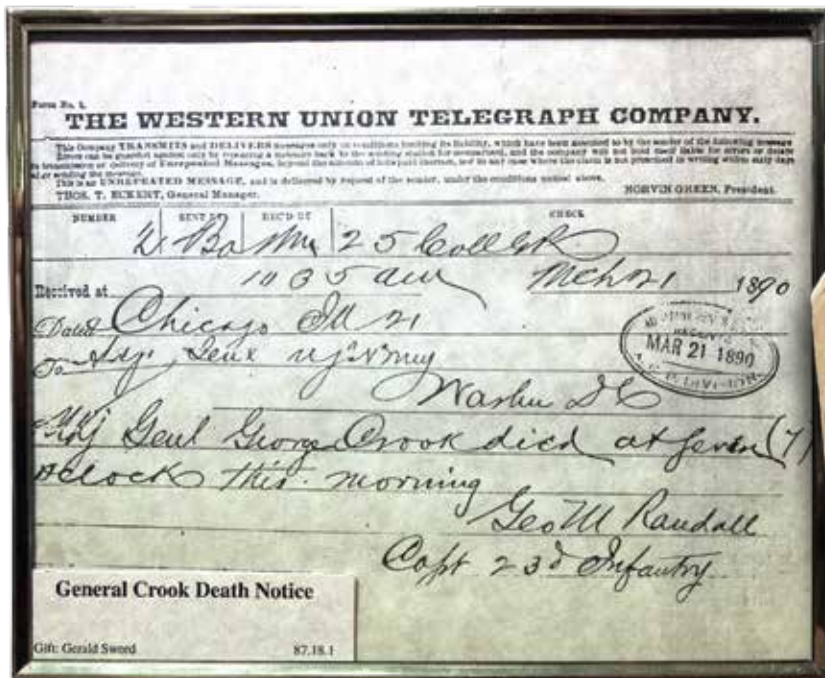 Form No. 1.
THE WESTERN UNION TELEGRAPH COMPANY.
This Company TRANSMITS and DELIVERS messages only on conditions limiting its liability, which have been assented to by the sender of the following message
Errors can be guarded against only by repeating a message back to the sending station for comparison, and the company will not hold itself liable for errors or delays
in transmission or delivery of Unrepeated Messages, beyond the amount of tolls paid thereon, nor in any case where the claim is not presented in writing within sixty days
after sending the message.
This is an UNREPEATED MESSAGE, and is delivered by request of the sender, under the conditions named above.
THOS. T. ECKERT, General Manager. NORVIN GREEN, President.
NUMBER SENT BY REC'D BY CHECK
25 Coll GR
Received at 10 35 am Mch 21 1890
Dated Chicago Ill 21
RECEIVED
MAR 21 1890
To
Washn DC
Maj Genl George Crook died at Seven (7)
oclock this morning
Geo M Randall
Capt 23d Infantry
General Crook Death Notice
Gift: Gerald Sword 87.18.1